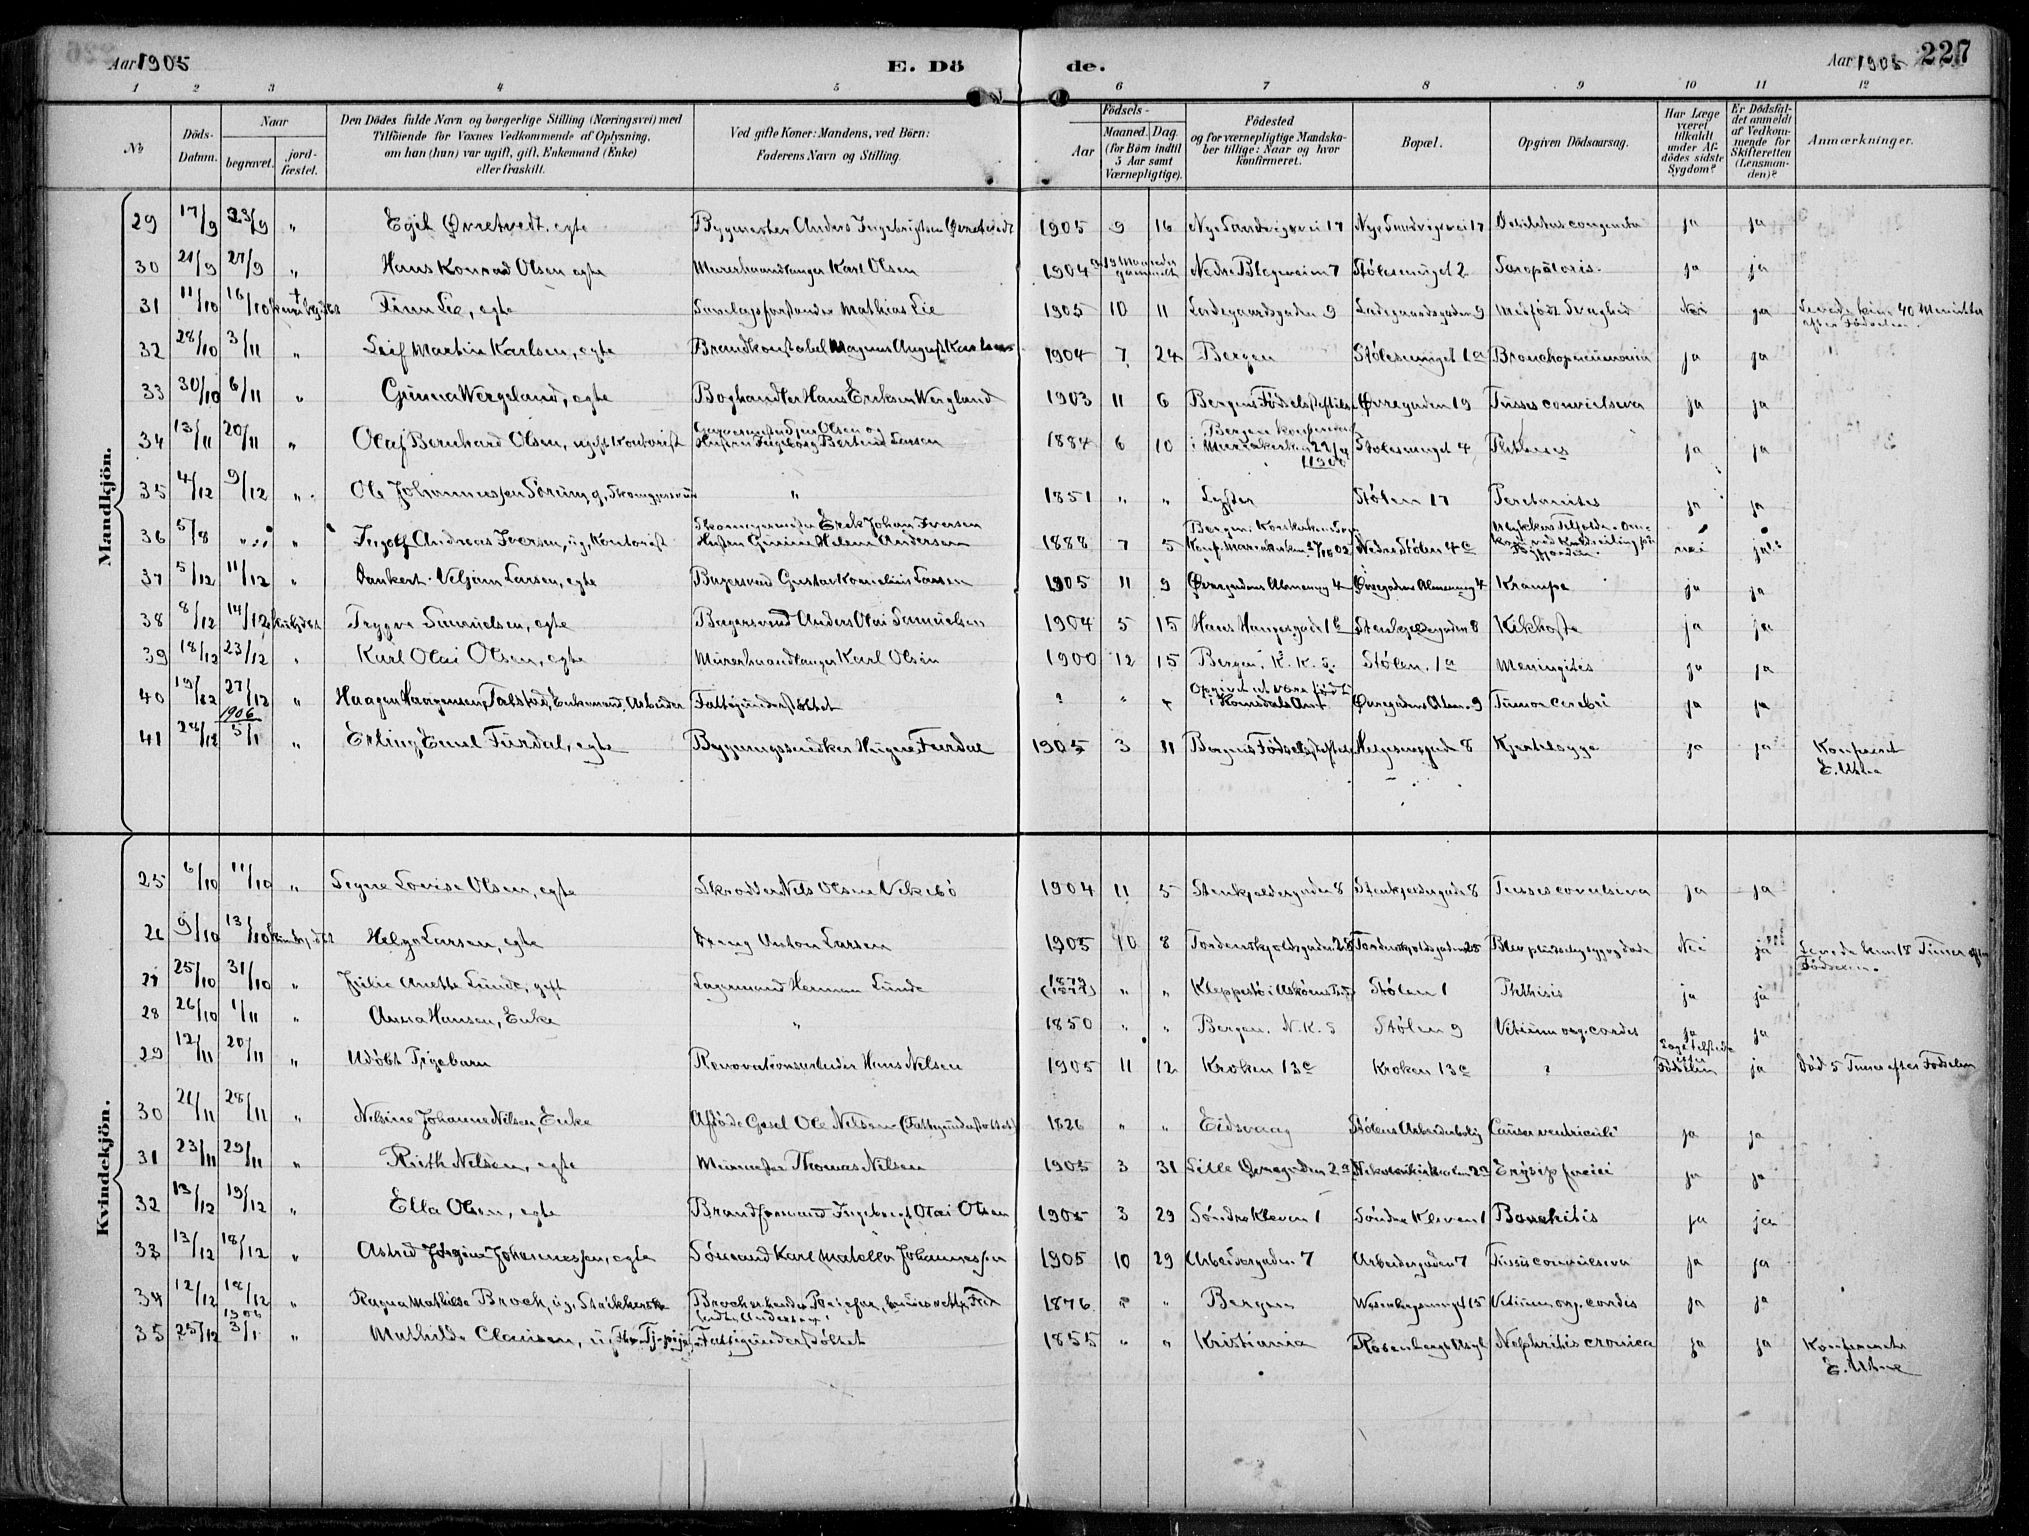 Aar 1905
E. Döde.
Aar 1905 227
1 2 3 4 5 6 7 8 9 10 11 12
No
Döds-Datum.
Naar begravet. jord-fæstet.
Den Dödes fulde Navn og borgerlige Stilling (Næringsvei) med Tilföiende for Voxnes Vedkommende af Oplysning, om han (hun) var ugift, gift, Enkemand (Enke) eller fraskilt.
Ved gifte Koner: Mandens, ved Börn: Faderens Navn og Stilling.
Födsels- Aar Maaned. Dag. (for Börn indtil 5 Aar samt Værnepligtige).
Födested og for værnepligtige Mandskaber tillige: Naar og hvor konfirmeret.
Bopæl.
Opgiven Dödsaarsag.
Har Læge været tilkaldt under Afdödes sidste Sygdom?
Er Dödsfaldet anmeldt af Vedkommende for Skifteretten (Lensmanden)?
Anmærkninger.
Mandkjön.
29 17/9 23/9 " Egil Øvretvedt, egte Bygmester Anders Ingebrigtsen Øvretvedt 1905 9 16 Nye Sandvigsvei 17 Nye Sandvigsvei 17 Debilitas congenita ja ja
30 21/9 27/9 " Hans Konrad Olsen, egte Murerhaandlanger Karl Olsen 1904 Nedre Blegevei 7 Stølesmuget 2 ja ja
31 11/10 16/10 Finn Lie, egte Mathias Lie 1905 10 11 Ladegaardsgaden 9 Ladegaardsgaden 9 Medfödt Svaghed Nei ja Levede kun 40 Minutter efter Fødselen.
32 28/10 3/11 " Leif Martin Karlsen, egte Brandkonstabel Magnus August Karlsen 1904 7 24 Bergen Stølesmuget 1a Bronchopneumonia ja ja
33 30/10 6/11 " Gunnar Wergeland, egte Boghandler Hans Eriksen Wergland 1903 11 6 Bergens Fødselsstiftelse Øvregaden 19 Tussis convulsiva ja ja
34 13/11 20/11 " Olaf Bernhard Olsen, ugift Kontorist Olsen og Hustru Ingeborg Bertine Larsen 1884 6 10 Bergen konfirmeret i Stølesmuget 4 Phthisis ja ja
35 4/12 9/12 " Ole Johannessen Sørum, g, Skomagersvend " 1851 " " Luster Stølen 17 Peritonites ja ja
36 5/8 " " Ingolf Andreas Iversen, ug, Kontorist Skomagermester Erik Johan Iversen Hustru Helene Andersen 1888 7 5 Bergen, Korskirken Nedre Stølen 4c nei ja
37 5/12 11/12 " Dankert Veljam Larsen, egte Bagersvend Gustav Kornelius Larsen 1905 11 9 Øvregadens Almening 4 Øvregadens Almening 4 Krampe ja ja
38 8/12 14/12 Trygve Samuelsen, egte Bagersvend Anders Olai Samuelsen 1904 5 15 Stenkjeldergaden 8 Kikhoste ja ja
39 18/12 23/12 " Karl Olai Olsen, egte Murerhaandlanger Karl Olsen 1900 12 15 Bergen, K. K. S. Stølen 1a Meningites ja ja
40 19/12 27/12 " Haagen Haagensen Tafstad, Enkemand, Arbeider Fattigunderstøttet ? " " Opgivet at være født i Romsdals Amt Øvregadens Alm. 9 Tumor cerebri ja ja
41 28/12 1906 5/1 " Erling Emil Furdal, egte Bygningssnedker Furdal 1905 3 11 Bergens Fødselsstiftelse 8 Kjertelsyge ja ja Konfereret E. Utne
Kvindekjön.
25 6/10 11/10 " Signe Lovise Olsen, egte Skrædder Nils Olsen Vikebø 1904 11 5 Stenkjeldergaden 8 Stenkjeldergade 8 Tussis convulsiva ja ja
26 9/10 13/10 Helga Larsen, egte Anton Larsen 1905 10 8 Tordenskjoldsgaden 25 Tordenskjoldsgaden 25 Nei ja Levede kun 18 Timer efter Fødselen.
27 25/10 31/10 " Julie Anette Lunde, gift Lagermand Herman Lunde 1879 " " Kleppestø i Askøens Stølen 1 Phthisis ja ja
28 26/10 1/11 " Anna Hansen, Enke " 1850 " " Bergen, N. K. S Stølen 9 Vitium org. cordis ja ja
29 12/11 20/11 " Udøbt Pigebarn Renovationsarbeider Hans Nilsen 1905 11 12 Kroken 13c Kroken 13c ? Læge tilstede efter Fødselen ja Død 5 Timer efter Fødselen
30 21/11 28/11 " Nelsine Johanne Nilsen, Enke Afdøde Gesel Ole Nilsen (Fattigunderstøttet) 1826 " " Eidsvaag Stølens Arbeiderbolig Cancer ventriculi ja ja
31 23/11 29/11 " Ruth Nilsen, egte Murmester Thomas Nilsen 1905 3 31 Lille Øvregaden 2a Nikolaikirkealm. 2a Erysip. faciei ja ja
32 13/12 19/12 " Ella Olsen, egte Brandformand Ingebrigt Olai Olsen 1905 3 29 Søndre Kleven 1 Søndre Kleven 1 Bonchitis ja ja
33 13/12 18/12 " Astrid Jørgine Johannessen, egte Sømand Karl Johannessen 1905 10 29 Arbeidergaden 7 Arbeidergaden 7 Tussis convulsiva ja ja
34 12/12 18/12 " Ragna Mathilde Broch, ug, Strikkerske 1876 " " Bergen Wesenbergsmuget 15 Vitium org. cordis ja ja
35 25/12 1906 3/1 " Mathilde Clausen, ug, Fattigunderstøttet 1855 " " Kristiania Rosenbergs Asyl Nephritis cronica ja ja Konfereret E. Utne